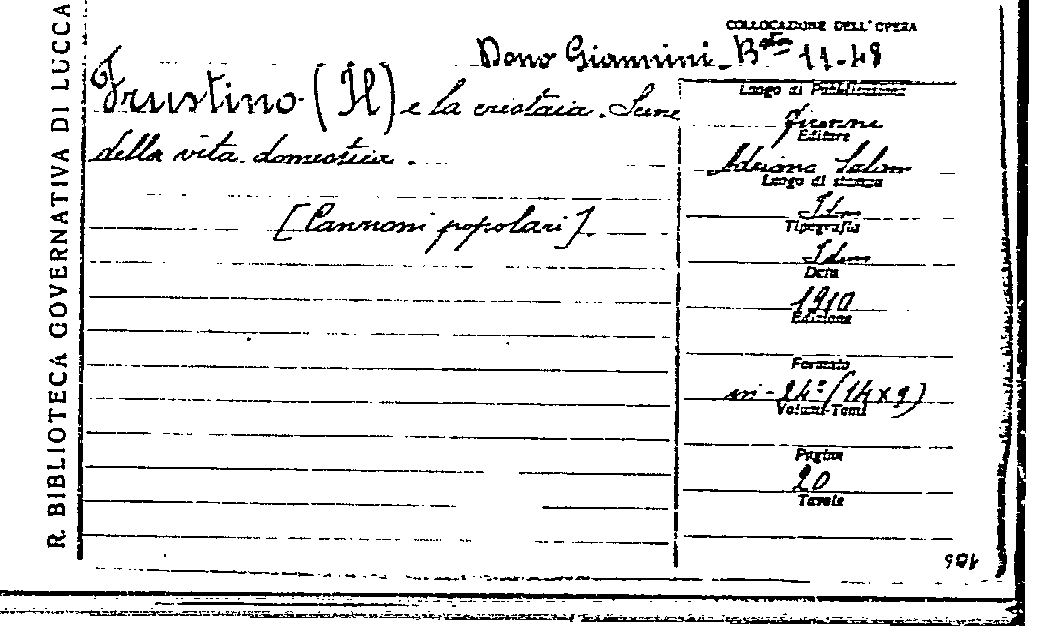 R. BIBLIOTECA GOVERNATIVA DI LUCCA
COLLOCAZIONE DELL'OPERA
Dono Giannini - B.ta 11-48
Frustino (Il) e la crestaia. Scene
della vita domestica.
[Canzoni popolari].
Luogo di Pubblicazione
Firenze
Editore
Adriano Salani
Luogo di stampa
Idem
Tipografia
Idem
Data
1910
Edizione
Formato
in-24° (14 x 9)
Volumi-Tomi
Pagine
20
Tavole